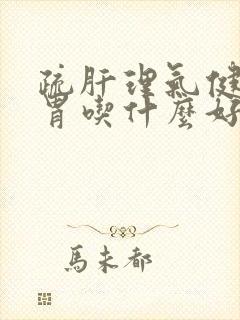 疏肝理气健
胃喫什麼好
馬未都